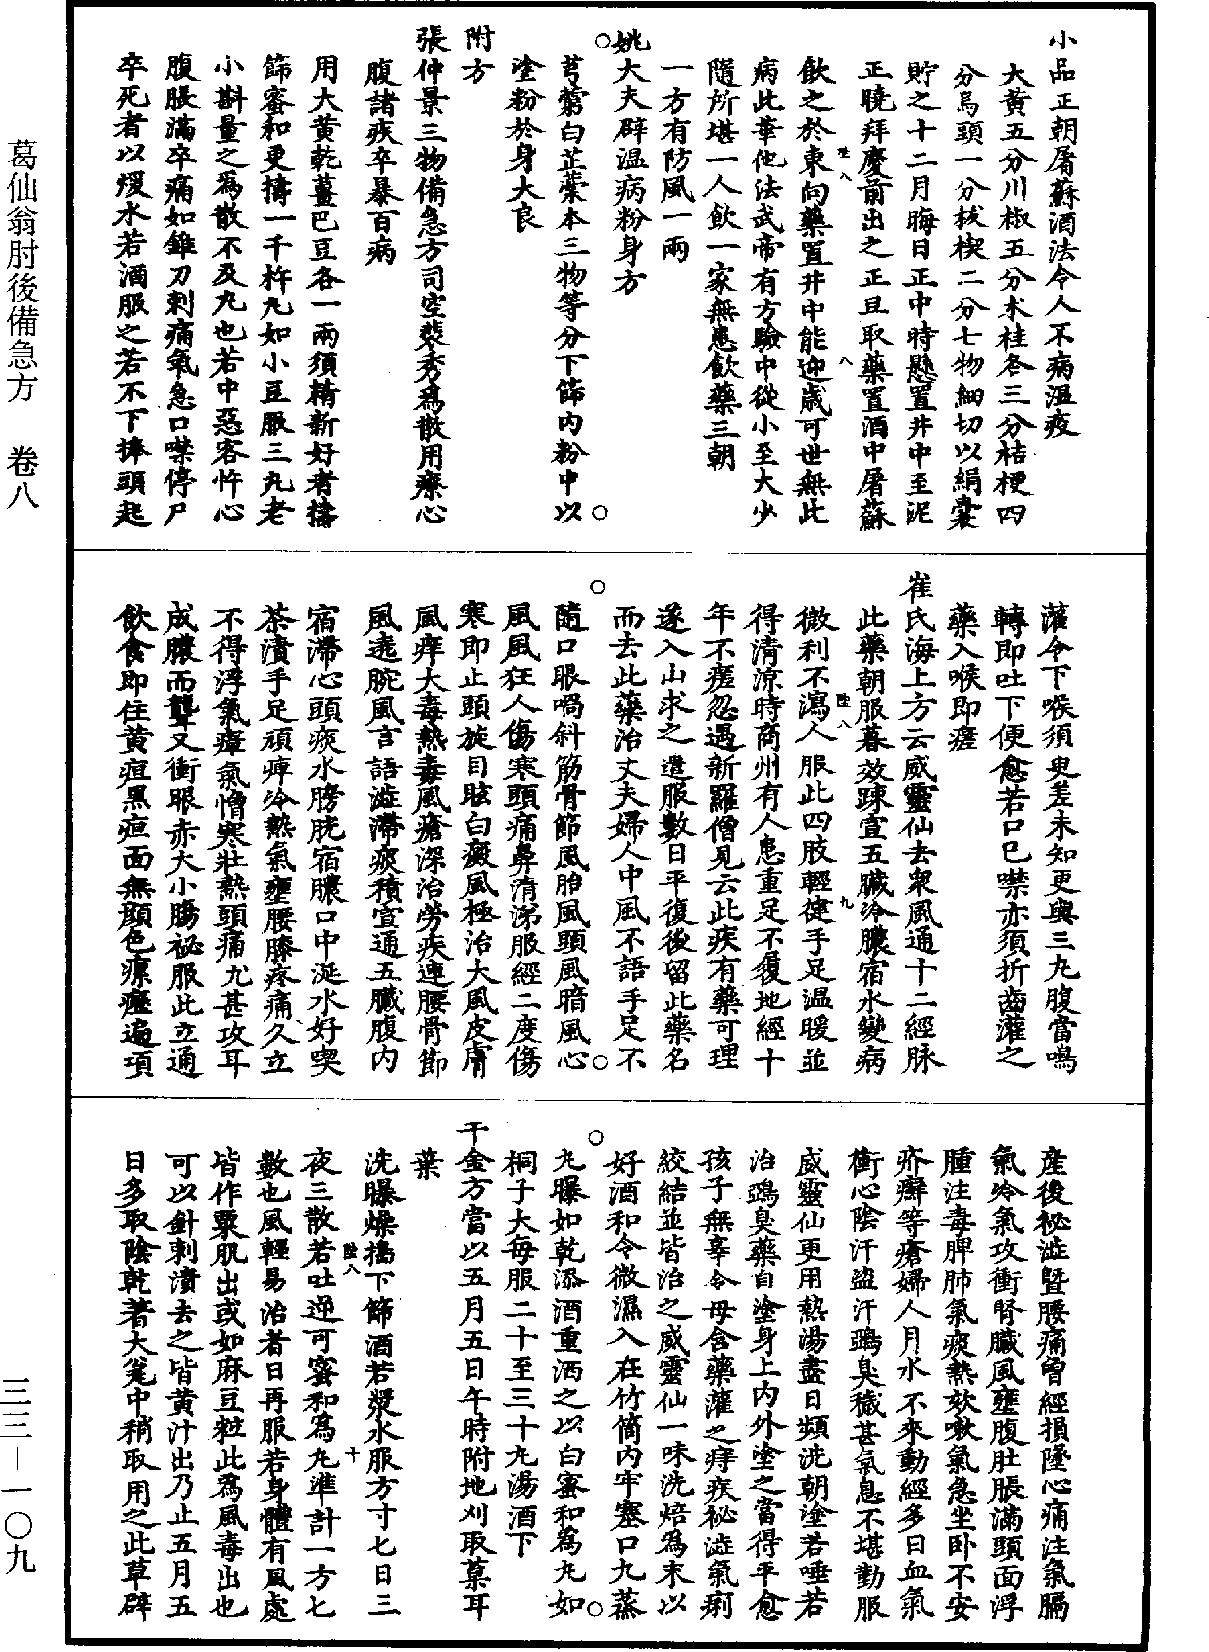 小品正朝屠蘇酒法令人不病溫疫
大黃五分川椒五分朮桂各三分桔梗四
分烏頭一分菝楔二分七物細切以絹囊
貯之十二月晦日正中時懸置井中至泥
正曉拜慶前出之正旦取藥置酒中屠蘇
飲之於東向藥置井中能迎歲可世無此
病此華佗法武帝有方驗中從小至大少
隨所堪一人飲一家無患飲藥三朝
一方有防風一兩
姚大夫辟溫病粉身方
芎藭白芷藁本三物等分下篩內粉中以
塗粉於身大良
附方
張仲景三物備急方司空裴秀爲散用療心
腹諸疾卒暴百病
用大黃乾薑巴豆各一兩須精新好者擣
篩蜜和更擣一千杵丸如小豆服三丸老
小斟量之爲散不及丸也若中惡客忤心
腹脹滿卒痛如錐刀刺痛氣急口噤停尸
卒死者以煖水若酒服之若不下捧頭起
灌令下喉須臾差未知更與三丸腹當鳴
轉即吐下便愈若口已噤亦須折齒灌之
藥入喉即瘥
崔氏海上方云威靈仙去衆風通十二經脉
此藥朝服暮效踈宣五臟冷膿宿水變病
微利不瀉人服此四肢輕健手足溫暖並
得清涼時商州有人患重足不履地經十
年不瘥忽遇新羅僧見云此疾有藥可理
遂入山求之遣服數日平復後留此藥名
而去此藥治丈夫婦人中風不語手足不
隨口眼喎斜筋骨節風胎風頭風暗風心
風風狂人傷寒頭痛鼻清涕服經二度傷
寒即止頭旋目眩白癜風極治大風皮膚
風痒大毒熱毒風瘡深治勞疾連腰骨節
風遶腕風言語澁滯痰積宣通五臟腹內
宿滯心頭痰水膀胱宿膿口中涎水好喫
茶漬手足頑痺冷熱氣壅腰膝疼痛久立
不得浮氣瘴氣憎寒壯熱頭痛尤甚攻耳
成膿而聾又衝眼赤大小腸祕服此立通
飲食即住黃疸黑疸面無顏色瘰癧遍項
產後祕澁暨腰痛曾經損墜心痛注氣膈
氣冷氣攻衝腎臟風壅腹肚脹滿頭面浮
腫注毒脾肺氣痰熱欬嗽氣急坐卧不安
疥癬等瘡婦人月水不來動經多日血氣
衝心陰汗盜汗鵶臭穢甚氣息不堪勤服
威靈仙更用熱湯盡日頻洗朝塗若唾若
治鵶臭藥自塗身上內外塗之當得平愈
孩子無辜令母含藥灌之痔疾祕澁氣痢
絞結並皆治之威靈仙一味洗焙爲末以
好酒和令微濕入在竹筒內牢塞口九蒸
九曝如乾添酒重洒之以白蜜和爲丸如
桐子大每服二十至三十丸湯酒下
千金方當以五月五日午時附地刈取葈耳
葉
洗曝燥擣下篩酒若漿水服方寸匕日三
夜三散若吐逆可蜜和爲丸準計一方匕
數也風輕易治者日再服若身體有風處
皆作粟肌出或如麻豆粒此爲風毒出也
可以針刺潰去之皆黃汁出乃止五月五
日多取陰乾著大瓮中稍取用之此草辟
葛仙翁肘後備急方　卷八
三三—一〇九